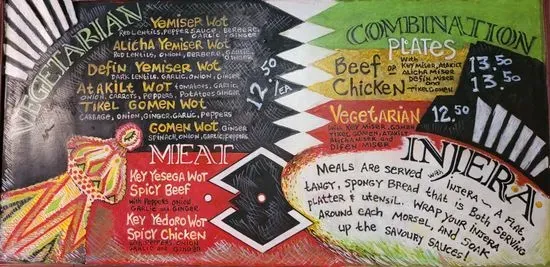 VEGETARIAN
YEMISER WOT
RED LENTILS, PEPPER SAUCE, BERBERE,
GARLIC, GINGER
ALICHA YEMISER WOT
RED LENTILS, ONION, BERBERE,
DEFIN YEMISER WOT
DARK LENTILS, GARLIC, ONION, GINGER
ATAKILT WOT TOMATOES, GARLIC,
ONION, CARROTS, PEPPERS, POTATOES, GINGER
TIKEL GOMEN WOT
CABBAGE, ONION, GINGER, GARLIC, PEPPERS
GOMEN WOT GINGER
SPINACH, ONION, GARLIC, PEPPERS
12.50
/EA
MEAT
KEY YESEGA WOT
SPICY BEEF
WITH PEPPERS, ONION
GARLIC AND GINGER
KEY YEDORO WOT
SPICY CHICKEN
WITH PEPPERS, ONION
GARLIC AND GINGER
COMBINATION
PLATES
BEEF OR
CHICKEN
WITH
KEY MISER, ATAKILT
ALICHA MISER
DEFIN MISER
AND
TIKEL GOMEN
13.50
13.50
VEGETARIAN 12.50
WITH KEY MISER, GOMEN
TIKEL GOMEN, ATAKILT
ALICHA MISER AND
DIFEN MISER
INJERA
MEALS ARE SERVED WITH INJERA ~ A FLAT,
TANGY, SPONGY BREAD THAT IS BOTH SERVING
PLATTER & UTENSIL. WRAP YOUR INJERA
AROUND EACH MORSEL, AND SOAK
UP THE SAVOURY SAUCES!